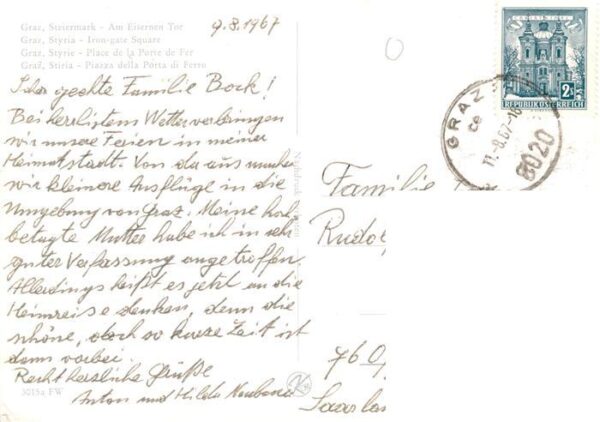 Graz, Steiermark - Am Eisernen Tor
Graz, Styria - Iron-gate Square
Graz, Styrie - Place de la Porte de Fer
Graz, Stiria - Piazza della Porta di Ferro
9.8.1967
Sehr geehrte Familie Bock!
Bei herrlichstem Wetter verbringen
wir unsere Ferien in meiner
Heimatstadt. Von da aus machen
wir kleinere Ausflüge in die
Umgebung von Graz. Meine hoch-
betagte Mutter habe ich in sehr
guter Verfassung angetroffen.
Allerdings heißt es jetzt an die
Heimreise denken, denn die
schöne, doch so kurze Zeit ist
dann vorbei.
Recht herzliche Grüße
Anton und Hilda
3015a FW
2 S
REPUBLIK ÖSTERREICH
GRAZ
11.-8.67-10
8020
Familie
Rudo
760
Saarlo